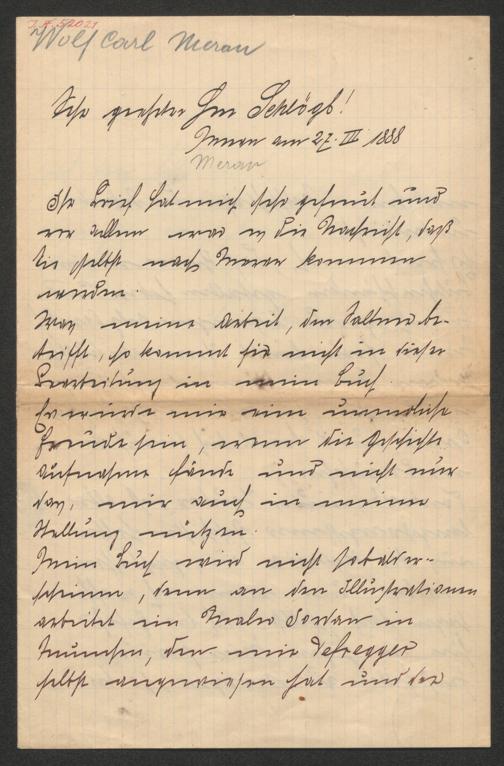 I.N. 52021
Wolf Carl Meran
Sehr geehrter Herr Schlögl!
Meran am 27. III. 1888
Meran
Ihr Brief hat mich sehr gefreut und
vor allem war es die Nachricht, daß
Sie selbst nach Meran kommen
werden.
Was meine Arbeit, den Saltner be-
trifft, so kommt sie nicht in dieser
Bearbeitung in mein Buch.
Es würde mir eine unendliche
Freude sein, wenn die Geschichte
Aufnahme fände und nicht nur
das, mir auch in meiner
Stellung nützen.
Mein Buch wird nicht sobald er-
scheinen, denn an den Illustrationen
arbeitet ein Maler Jordan in
München, den mir Defregger
selbst angewiesen hat und der